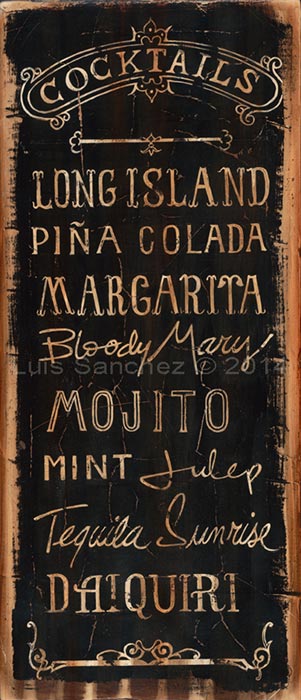 COCKTAILS
LONG ISLAND
PIÑA COLADA
MARGARITA
Bloody Mary!
Luis Sanchez © 2014
MOJITO
MINT Julep
Tequila Sunrise
DAIQUIRI